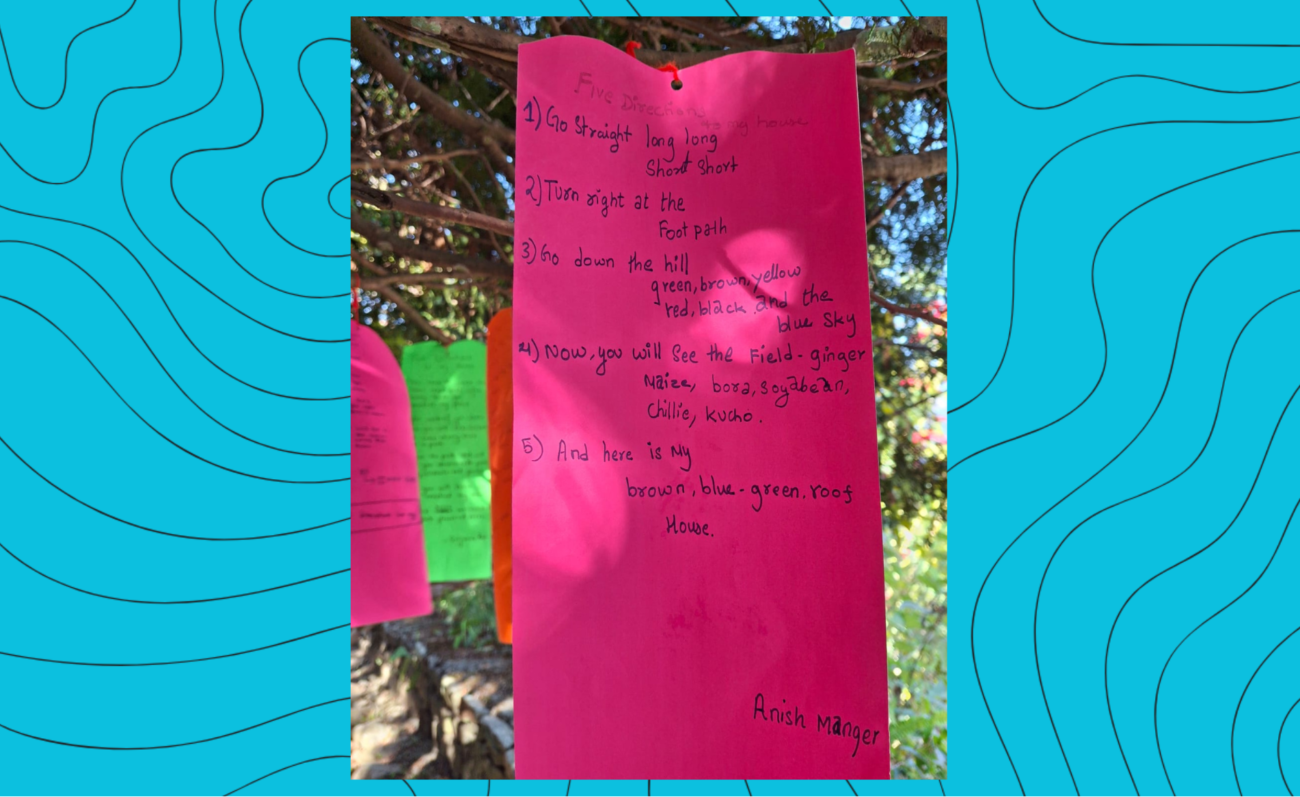 Five Directions
to my house
1) Go Straight long long
Short Short
2) Turn right at the
Foot path
3) Go down the hill
green, brown, yellow
red, black and the
blue Sky
4) Now, you will See the Field - ginger
Maize, bora, soyabean,
Chillie, kucho.
5) And here is My
brown, blue - green. roof
House.
Anish Manger